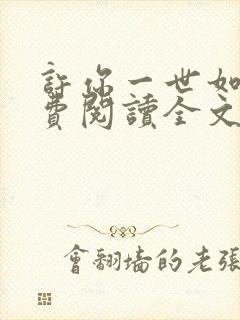 許你一世如
費閱讀全文
會翻墻的老張